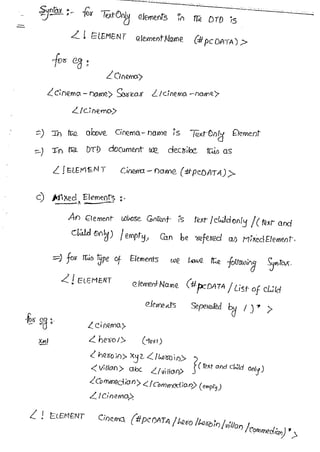 Syntax :- for TextOnly elements in the DTD is
<! ELEMENT elementName (#pcDATA)>
for eg :
<Cinema>
<Cinema-name> Sarkar </cinema-name>
</cinema>
=) In the above Cinema-name is Text Only Element
=) In the DTD document we describe this as
<!ELEMENT Cinema-name (#pcDATA)>
c) Mixed Elements :-
An Element whose Content is text / child only / (text and
child only) / empty, Can be refered as Mixed Element.
=) for this type of Elements we have the following Syntax.
<! ELEMENT elementName (#pcDATA / List of child
elements Seperated by / )* >
for eg :
<cinema>
xml <hero/> (text)
<heroin> xyz </heroin>
<villan> abc </villan> } (text and child only)
<Commedian> </Commedian> (empty)
</Cinema>
<! ELEMENT Cinema (#pcDATA / hero / heroin / villan / Commedian)*>